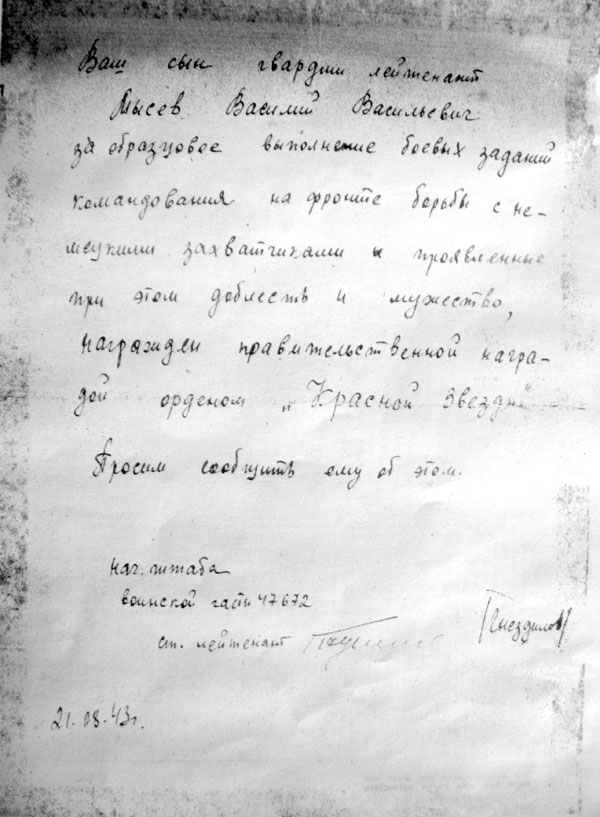 Ваш сын гвардии лейтенант
Мысев Василий Васильевич
за образцовое выполнение боевых заданий
командования на фронте борьбы с не-
мецкими захватчиками и проявленные
при этом доблесть и мужество,
награжден правительственной награ-
дой орденом „Красной Звезды"
Просим сообщить ему об этом.
нач. штаба
воинской части 47672
ст. лейтенант /Гнездилов/
21.08.43г.